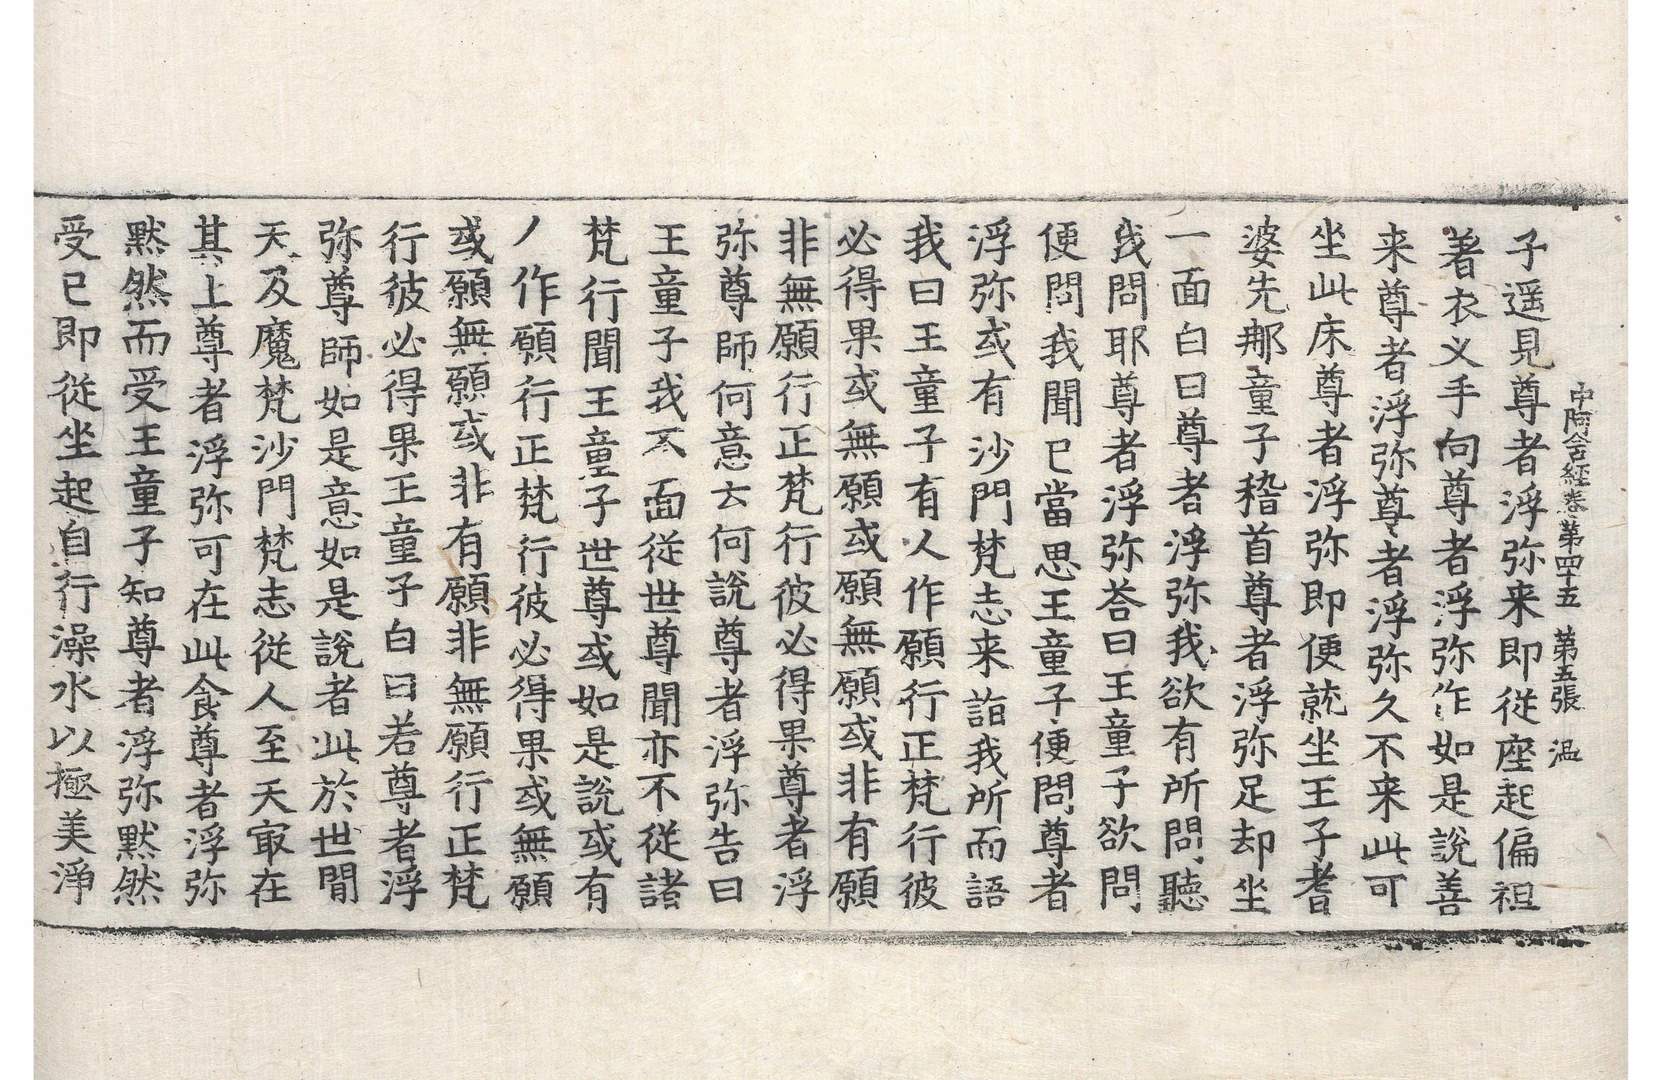 中阿含經卷第四十五　第五張　温
子遥見尊者浮弥来即從座起偏袒
著衣叉手向尊者浮弥作如是說善
来尊者浮弥尊者浮弥久不来此可
坐此床尊者浮弥即便就坐王子耆
婆先那童子稽首尊者浮弥足却坐
一面白曰尊者浮弥我欲有所問聽
我問耶尊者浮弥荅曰王童子欲問
便問我聞已當思王童子便問尊者
浮弥或有沙門梵志来詣我所而語
我曰王童子有人作願行正梵行彼
必得果或無願或願無願或非有願
非無願行正梵行彼必得果尊者浮
弥尊師何意云何說尊者浮弥告曰
王童子我不面從世尊聞亦不從諸
梵行聞王童子世尊或如是說或有
人作願行正梵行彼必得果或無願
或願無願或非有願非無願行正梵
行彼必得果王童子白曰若尊者浮
弥尊師如是意如是說者此於世間
天及魔梵沙門梵志從人至天㝡在
其上尊者浮弥可在此食尊者浮弥
默然而受王童子知尊者浮弥默然
受已即從坐起自行澡水以極美淨